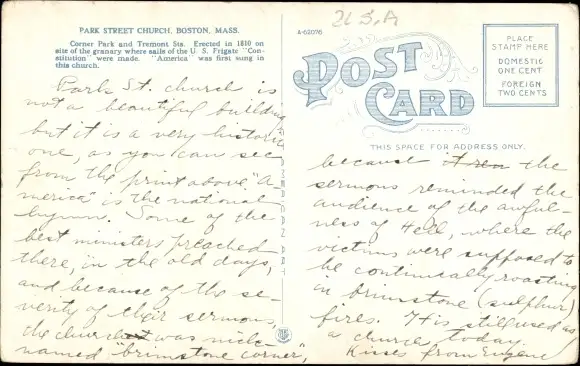 PARK STREET CHURCH, BOSTON, MASS.
Corner Park and Tremont Sts. Erected in 1810 on
site of the granary where sails of the U. S. Frigate "Con-
stitution" were made. "America" was first sung in
this church.
Park St. church is
not a beautiful building
but it is a very historic
one, as you can see
from the print above. "A-
merica" is the national
hymn. Some of the
best ministers preached
there, in the old days,
and because of the se-
verity of their sermons,
the church was nick-
named "brimstone corner",
U.S.A
A-62076
POST
CARD
PLACE
STAMP HERE
DOMESTIC
ONE CENT
FOREIGN
TWO CENTS
THIS SPACE FOR ADDRESS ONLY.
because the
sermons reminded the
audience of the awful-
ness of Hell, where the
victims were supposed to
be continually roasting
in brimstone (sulphur)
fires. It is still used as
a church, today.
Kisses from Eugene